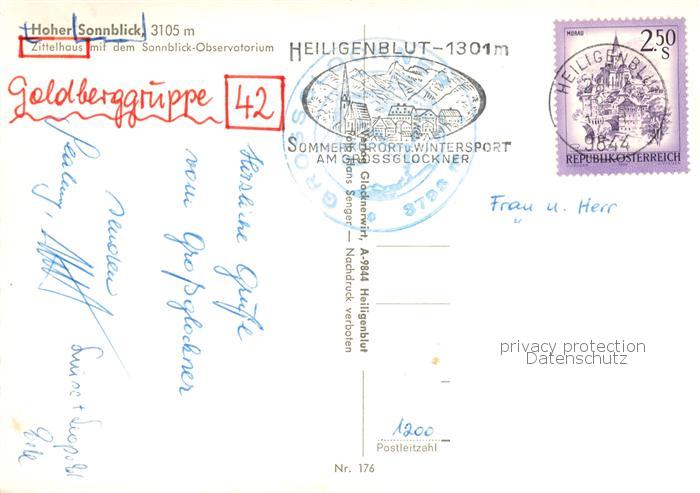 Hoher Sonnblick, 3105 m
Zittelhaus mit dem Sonnblick-Observatorium
Goldberggruppe 42
HEILIGENBLUT-1301m
SOMMERKURORT u. WINTERSPORT
AM GROSSGLOCKNER
MURAU
2.50
S
REPUBLIK ÖSTERREICH
HEILIGENBLUT
9844
GROSS
3798
Herzliche Grüße
vom Großglockner
senden
Luise + Leopold
Glocknerwirt, A-9844 Heiligenblut
Hans Senger — Nachdruck verboten
Frau u. Herr
"
privacy protection
Datenschutz
1200
Postleitzahl
Nr. 176